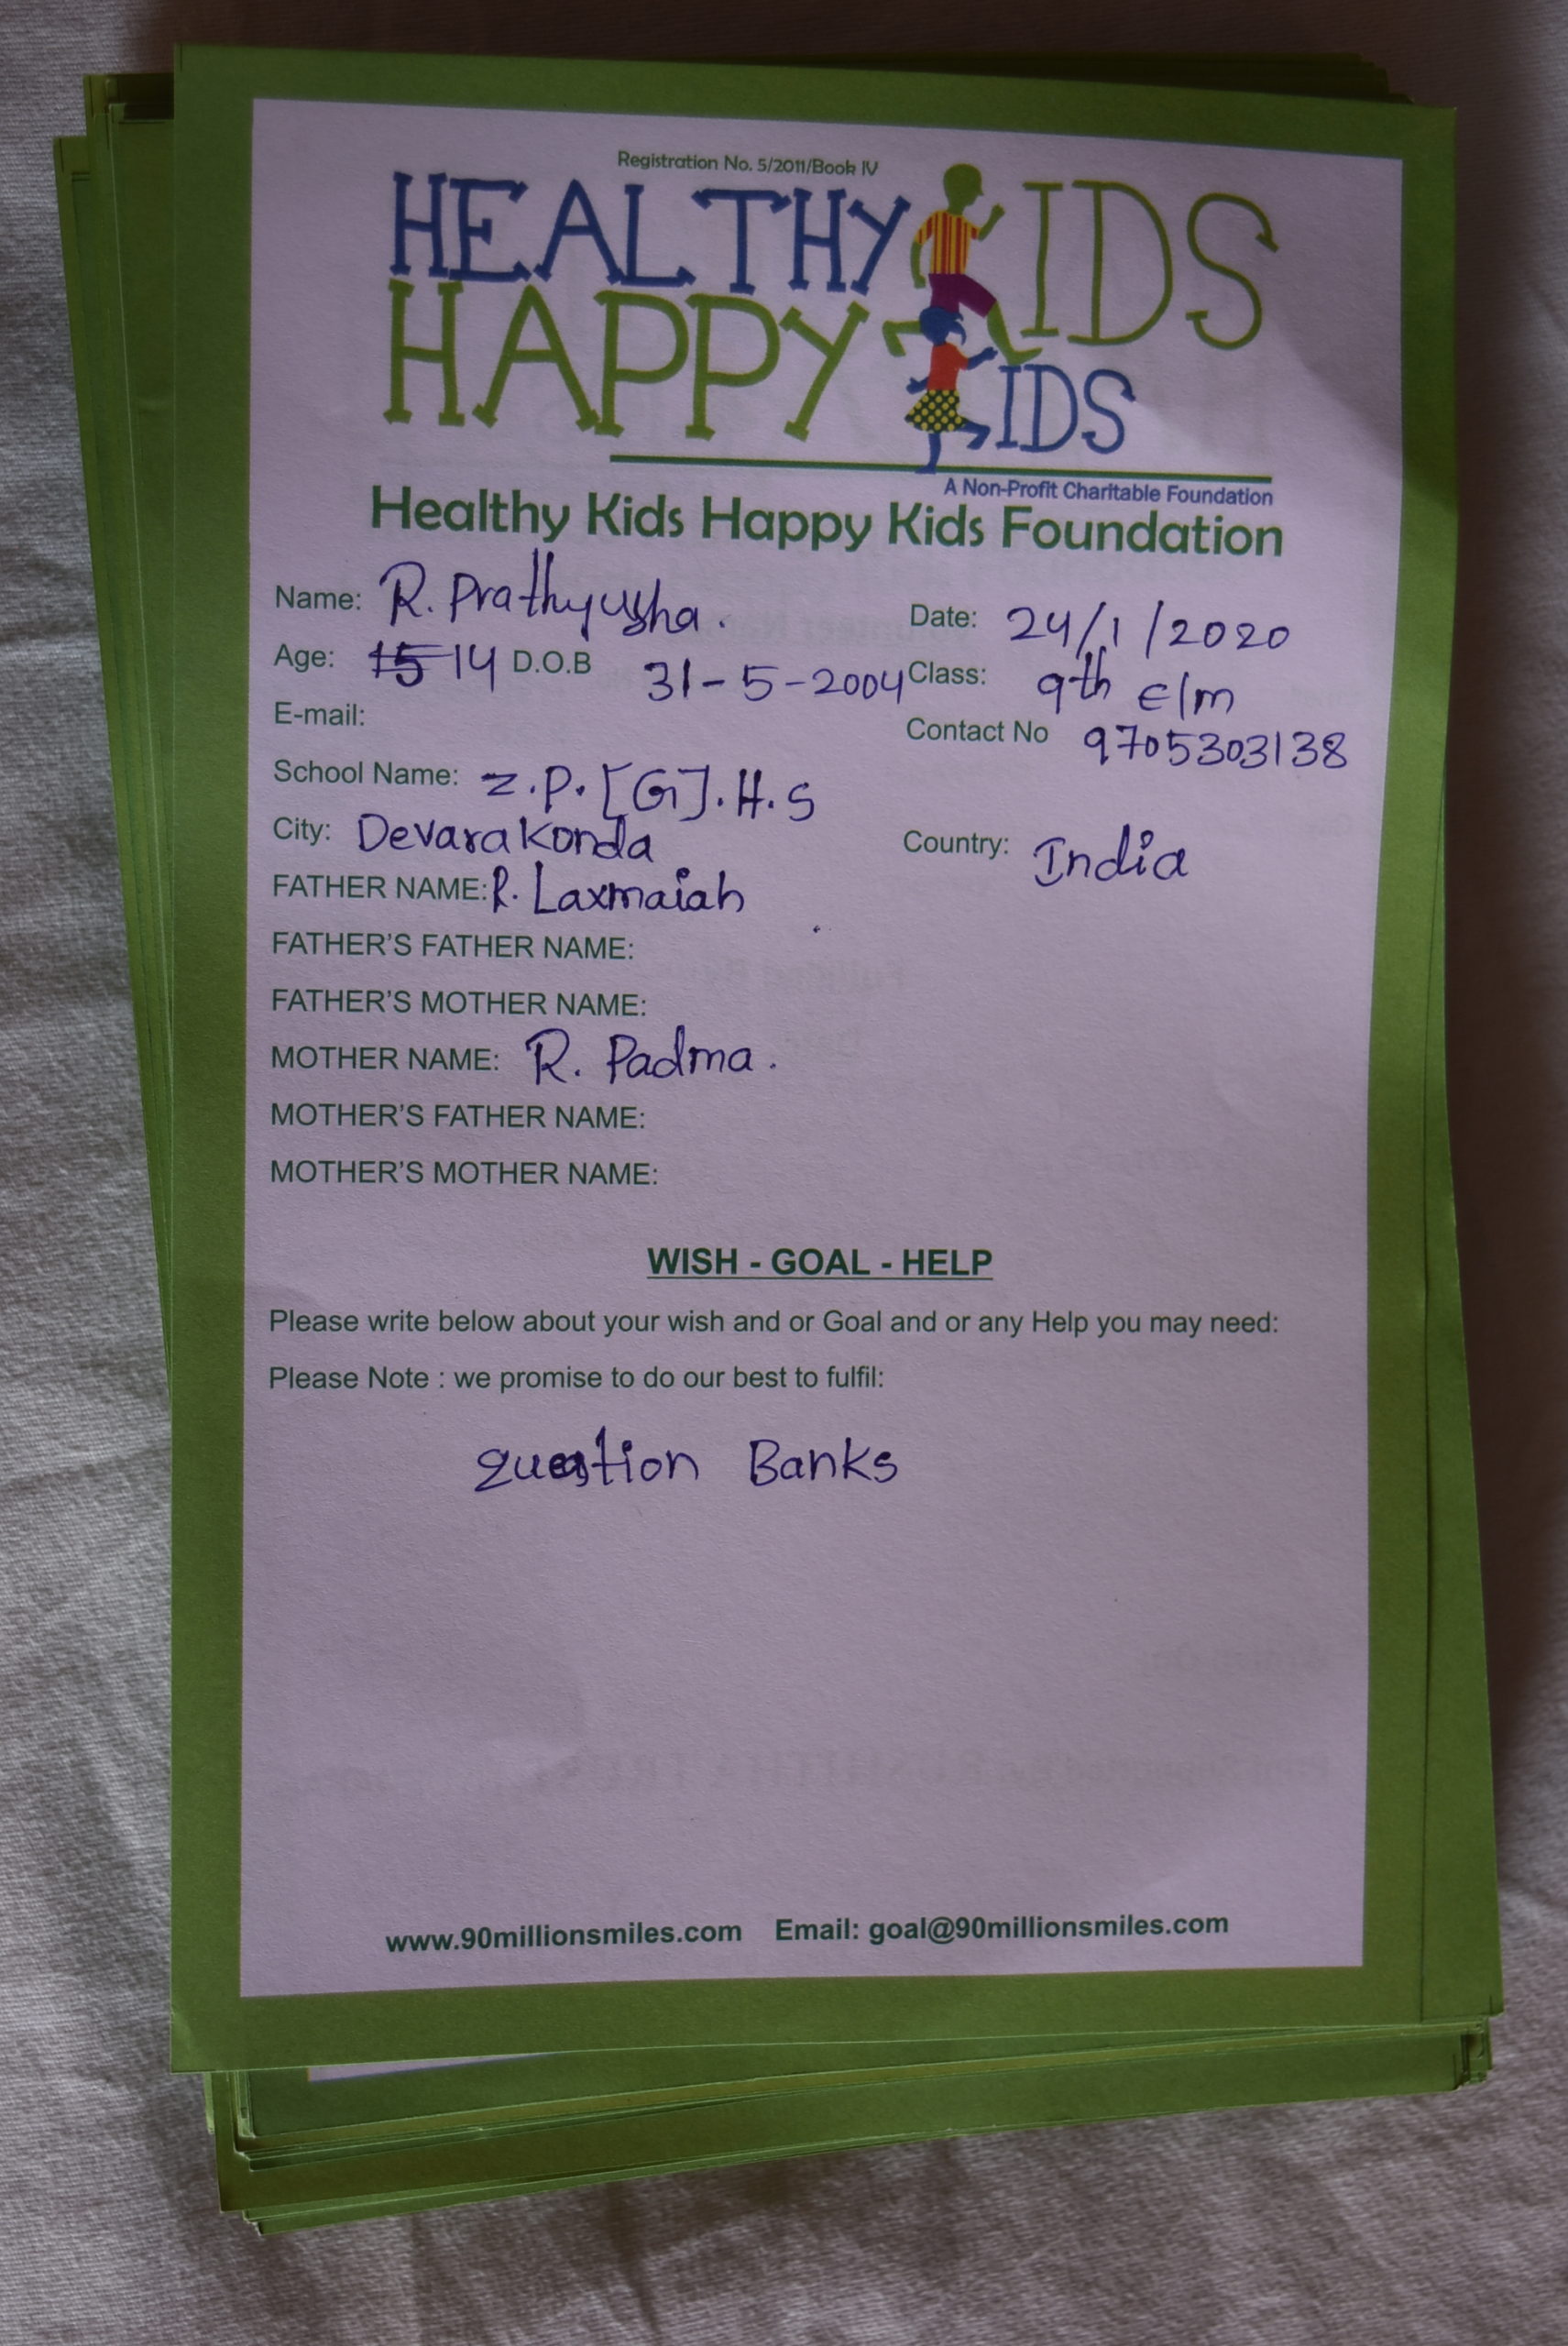 Registration No. 5/2011/Book IV
HEALTHY KIDS
HAPPY KIDS
A Non-Profit Charitable Foundation
Healthy Kids Happy Kids Foundation
Name: R. Prathyusha. Date: 24/1/2020
Age: 15 14 D.O.B 31-5-2004 Class: 9th E/m
E-mail: Contact No 9705303138
School Name: Z.P.[G].H.S
City: Devarakonda Country: India
FATHER NAME: R. Laxmaiah
FATHER'S FATHER NAME:
FATHER'S MOTHER NAME:
MOTHER NAME: R. Padma.
MOTHER'S FATHER NAME:
MOTHER'S MOTHER NAME:
WISH - GOAL - HELP
Please write below about your wish and or Goal and or any Help you may need:
Please Note : we promise to do our best to fulfil:
question Banks
www.90millionsmiles.com Email: goal@90millionsmiles.com